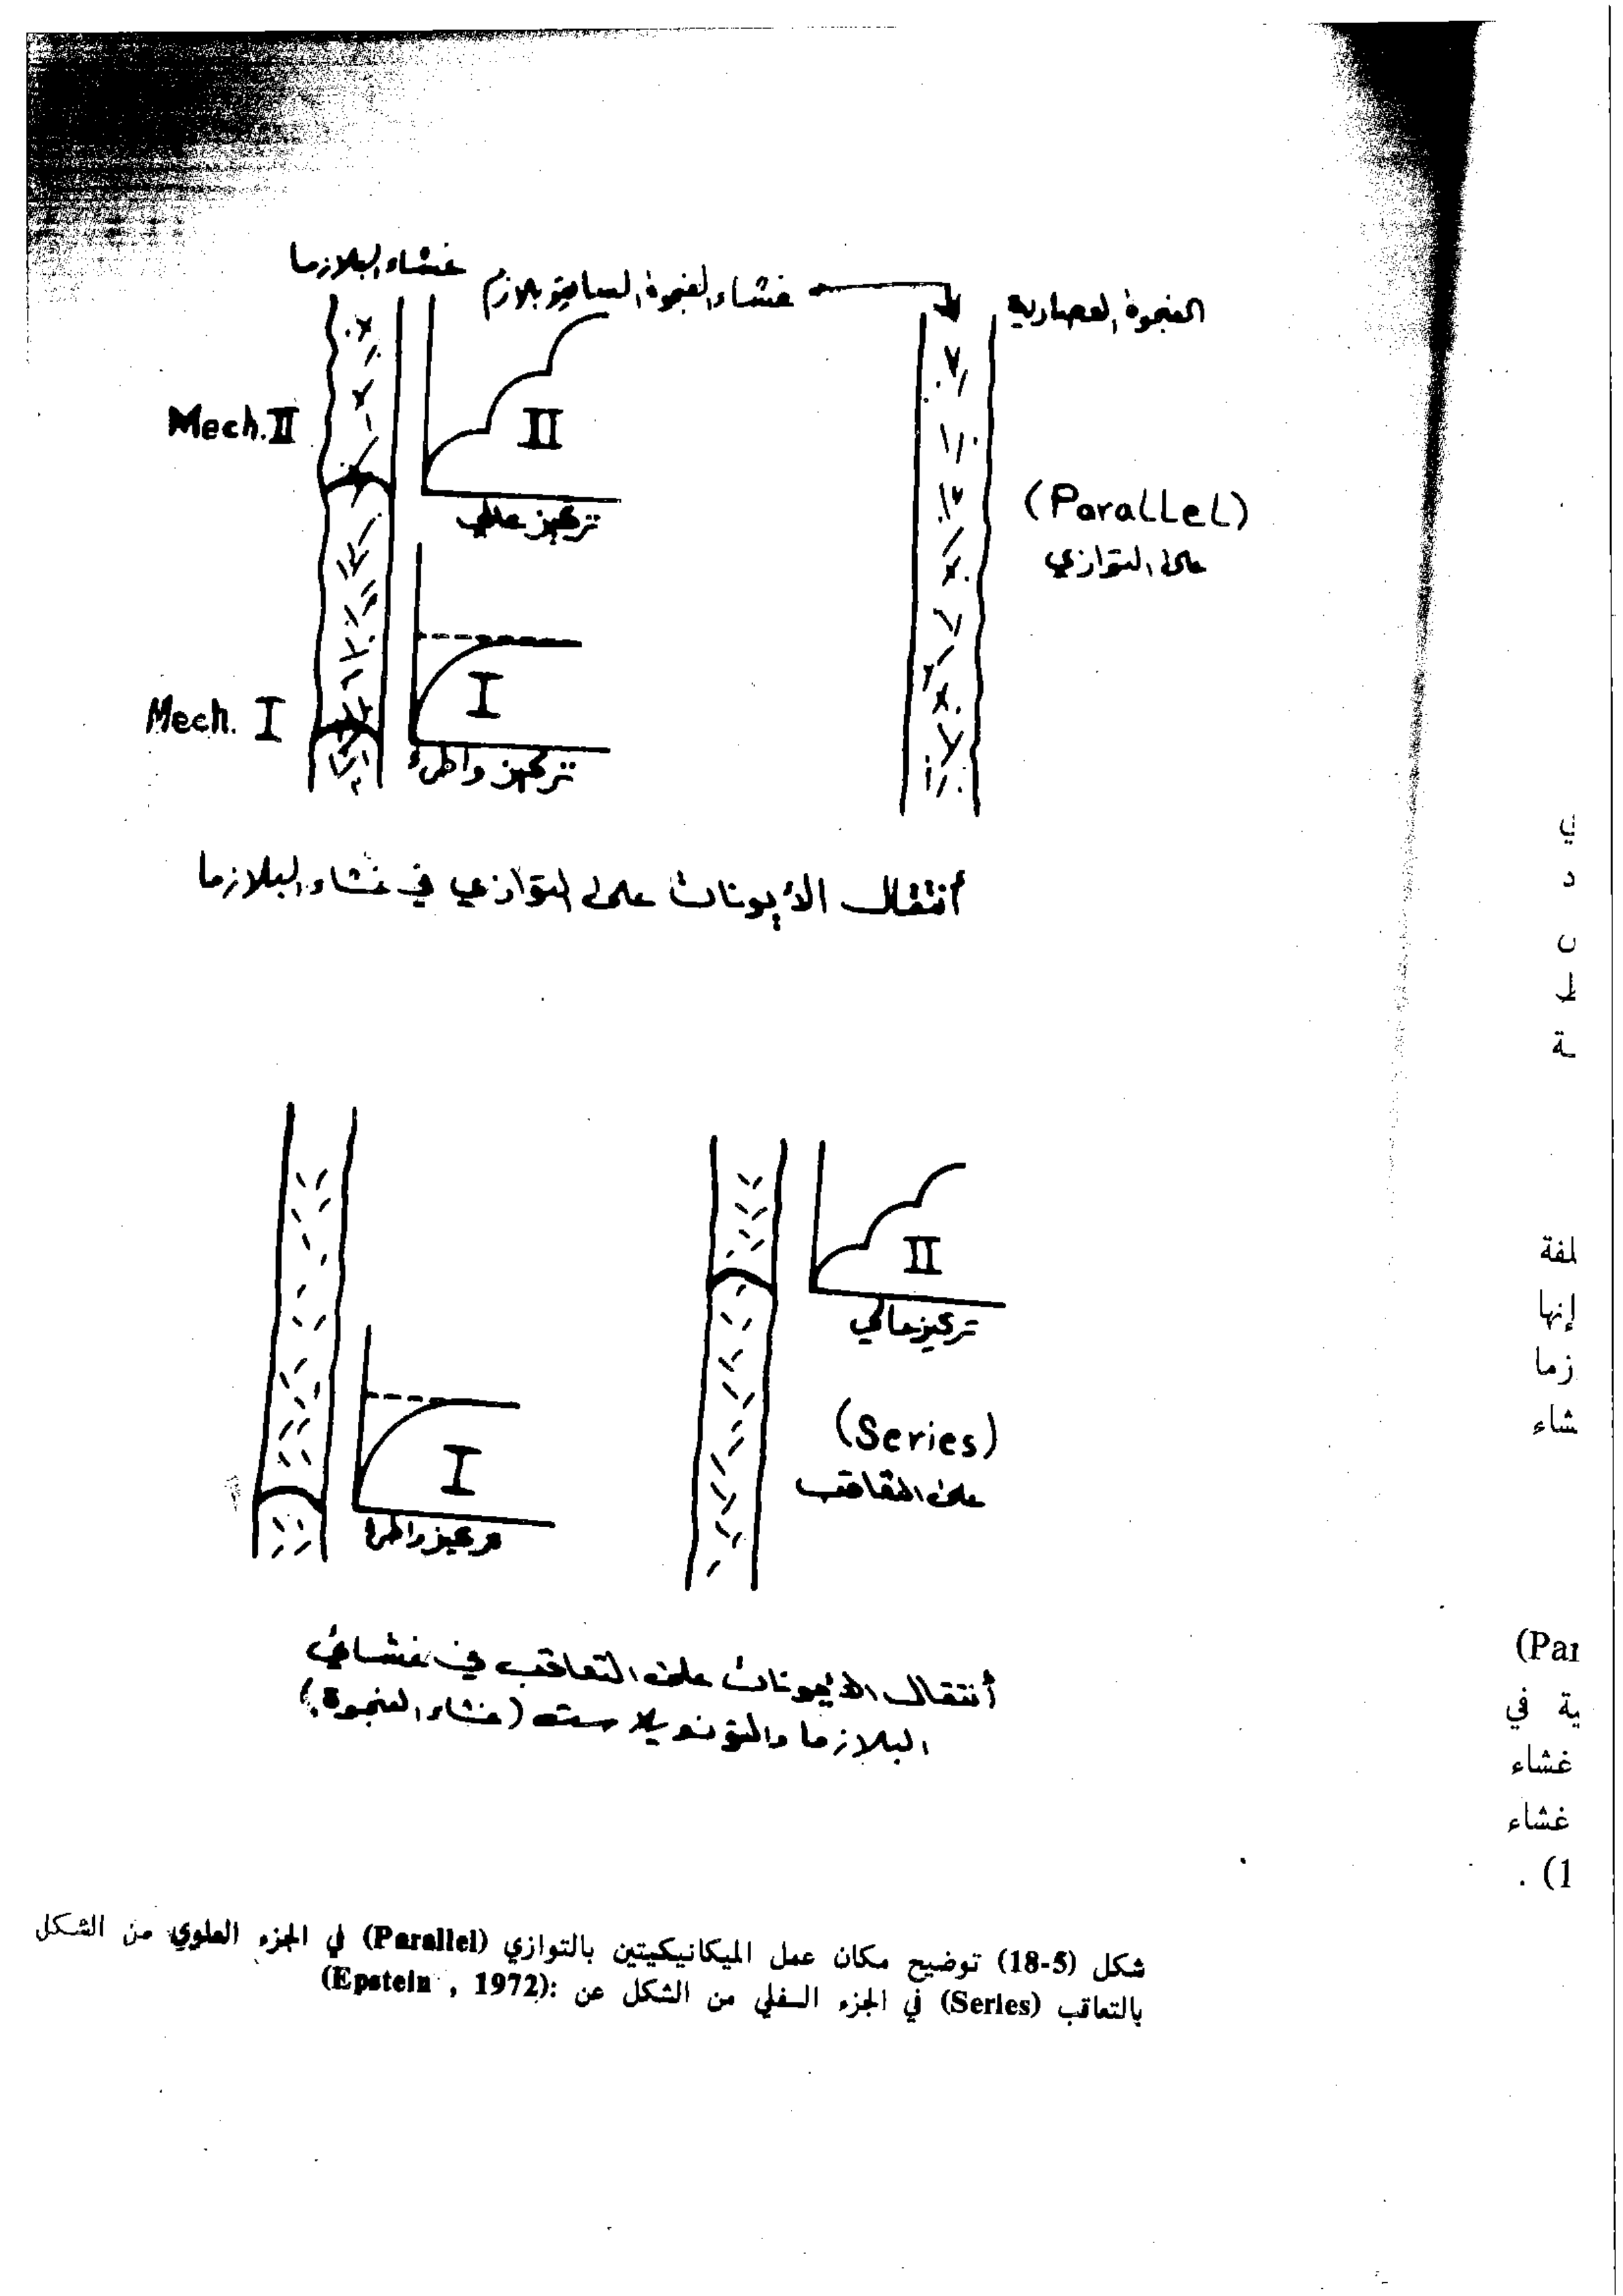 غشاء البلازما
غشاء الفجوة السايتوبلازم
الفجوة العصارية
Mech. II
II
تركيز عالي
(Parallel)
على التوازي
Mech. I
I
تركيز واطيء
أنتقال الأيونات على التوازي في غشاء البلازما
II
تركيز عالي
(Series)
على التعاقب
I
تركيز واطيء
أنتقال الأيونات على التعاقب في غشائي
البلازما والتونوبلاست (غشاء الفجوة)
شكل (5-18) توضيح مكان عمل الميكانيكيتين بالتوازي (Parallel) في الجزء العلوي من الشكل
بالتعاقب (Series) في الجزء السفلي من الشكل عن :(Epstein , 1972)
لفة
إنها
زما
شاء
(Par
ية في
غشاء
غشاء
1) .